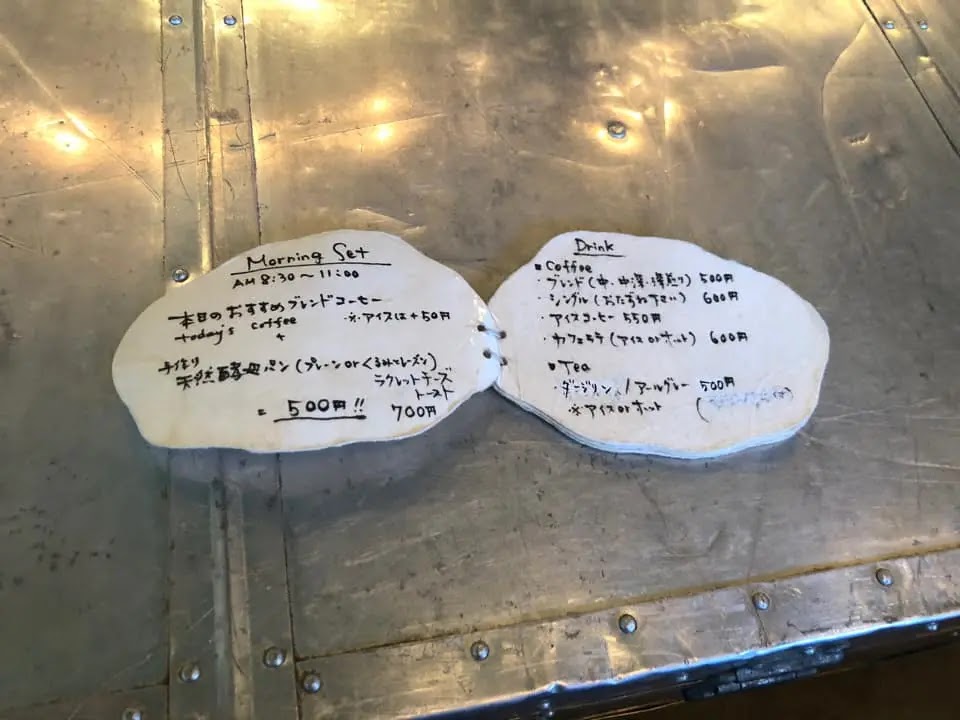 Morning Set
AM 8:30〜11:00
本日のおすすめブレンドコーヒー
today's coffee ※アイスは+50円
+
手作り
天然酵母パン(プレーンorくるみ・レーズン)
ラクレットチーズ
トースト
= 500円!! 700円
Drink
■Coffee
・ブレンド(中・中深・深煎り) 500円
・シングル(おたずね下さい) 600円
・アイスコーヒー 550円
・カフェラテ(アイスorホット) 600円
■Tea
・ダージリン / アールグレー 500円
※アイスorホット